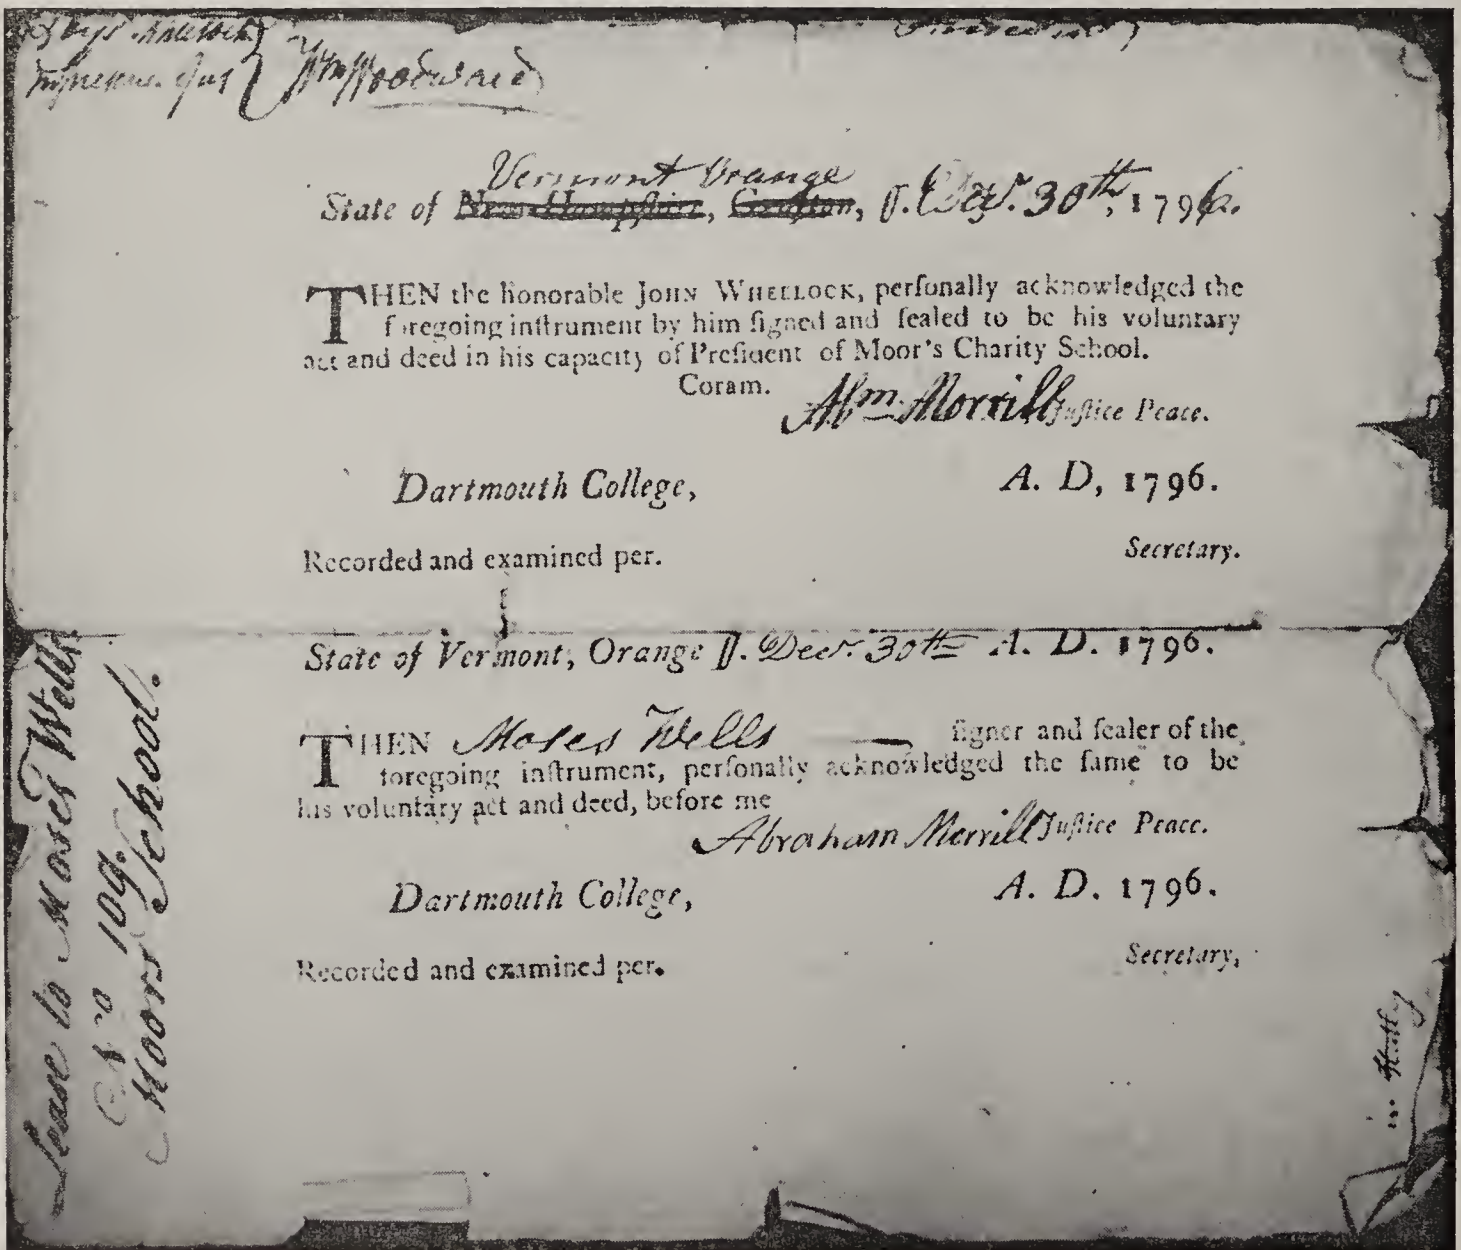 Wm Woodward
Vermont Orange
State of New-Hampſhire, Grafton, ſſ. Decr. 30th, 1796.
THEN the honorable JOHN WHEELOCK, perſonally acknowledged the
foregoing inſtrument by him ſigned and ſealed to be his voluntary
act and deed in his capacity of Preſident of Moor's Charity School.
Coram.
Abm Morrill Juſtice Peace.
Dartmouth College, A. D, 1796.
Recorded and examined per. Secretary.
State of Vermont, Orange ſſ. Decr. 30th A. D. 1796.
THEN Moses Wells — ſigner and ſealer of the
foregoing inſtrument, perſonally acknowledged the ſame to be
his voluntary act and deed, before me
Abraham Merrill Juſtice Peace.
Dartmouth College, A. D. 1796.
Recorded and examined per. Secretary,
Lease to Moses Wells
No 109.
Moors School.